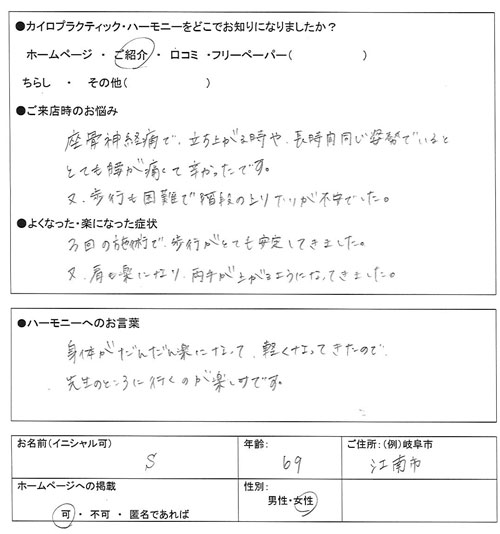 ●カイロプラクティック・ハーモニーをどこでお知りになりましたか？
ホームページ ・ ご紹介 ・ 口コミ ・フリーペーパー（　　　　　　）
ちらし ・ その他（　　　　　　　）
●ご来店時のお悩み
座骨神経痛で、立ち上がる時や、長時間同じ姿勢でいると
とても腰が痛くて辛かったです。
又、歩行も困難で階段の上り下りが不安でした。
●よくなった・楽になった症状
3回の施術で、歩行がとても安定してきました。
又、肩も楽になり、両手が上がるようになってきました。
●ハーモニーへのお言葉
身体がだんだん楽になって、軽くなってきたので、
先生のところに行くのが楽しみです。
お名前（イニシャル可） 年齢： ご住所：（例）岐阜市
S 69 江南市
ホームページへの掲載 性別：
可 ・ 不可 ・ 匿名であれば 男性・女性